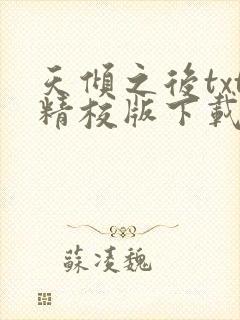 天傾之後txt
精校版下載
蘇淩魏